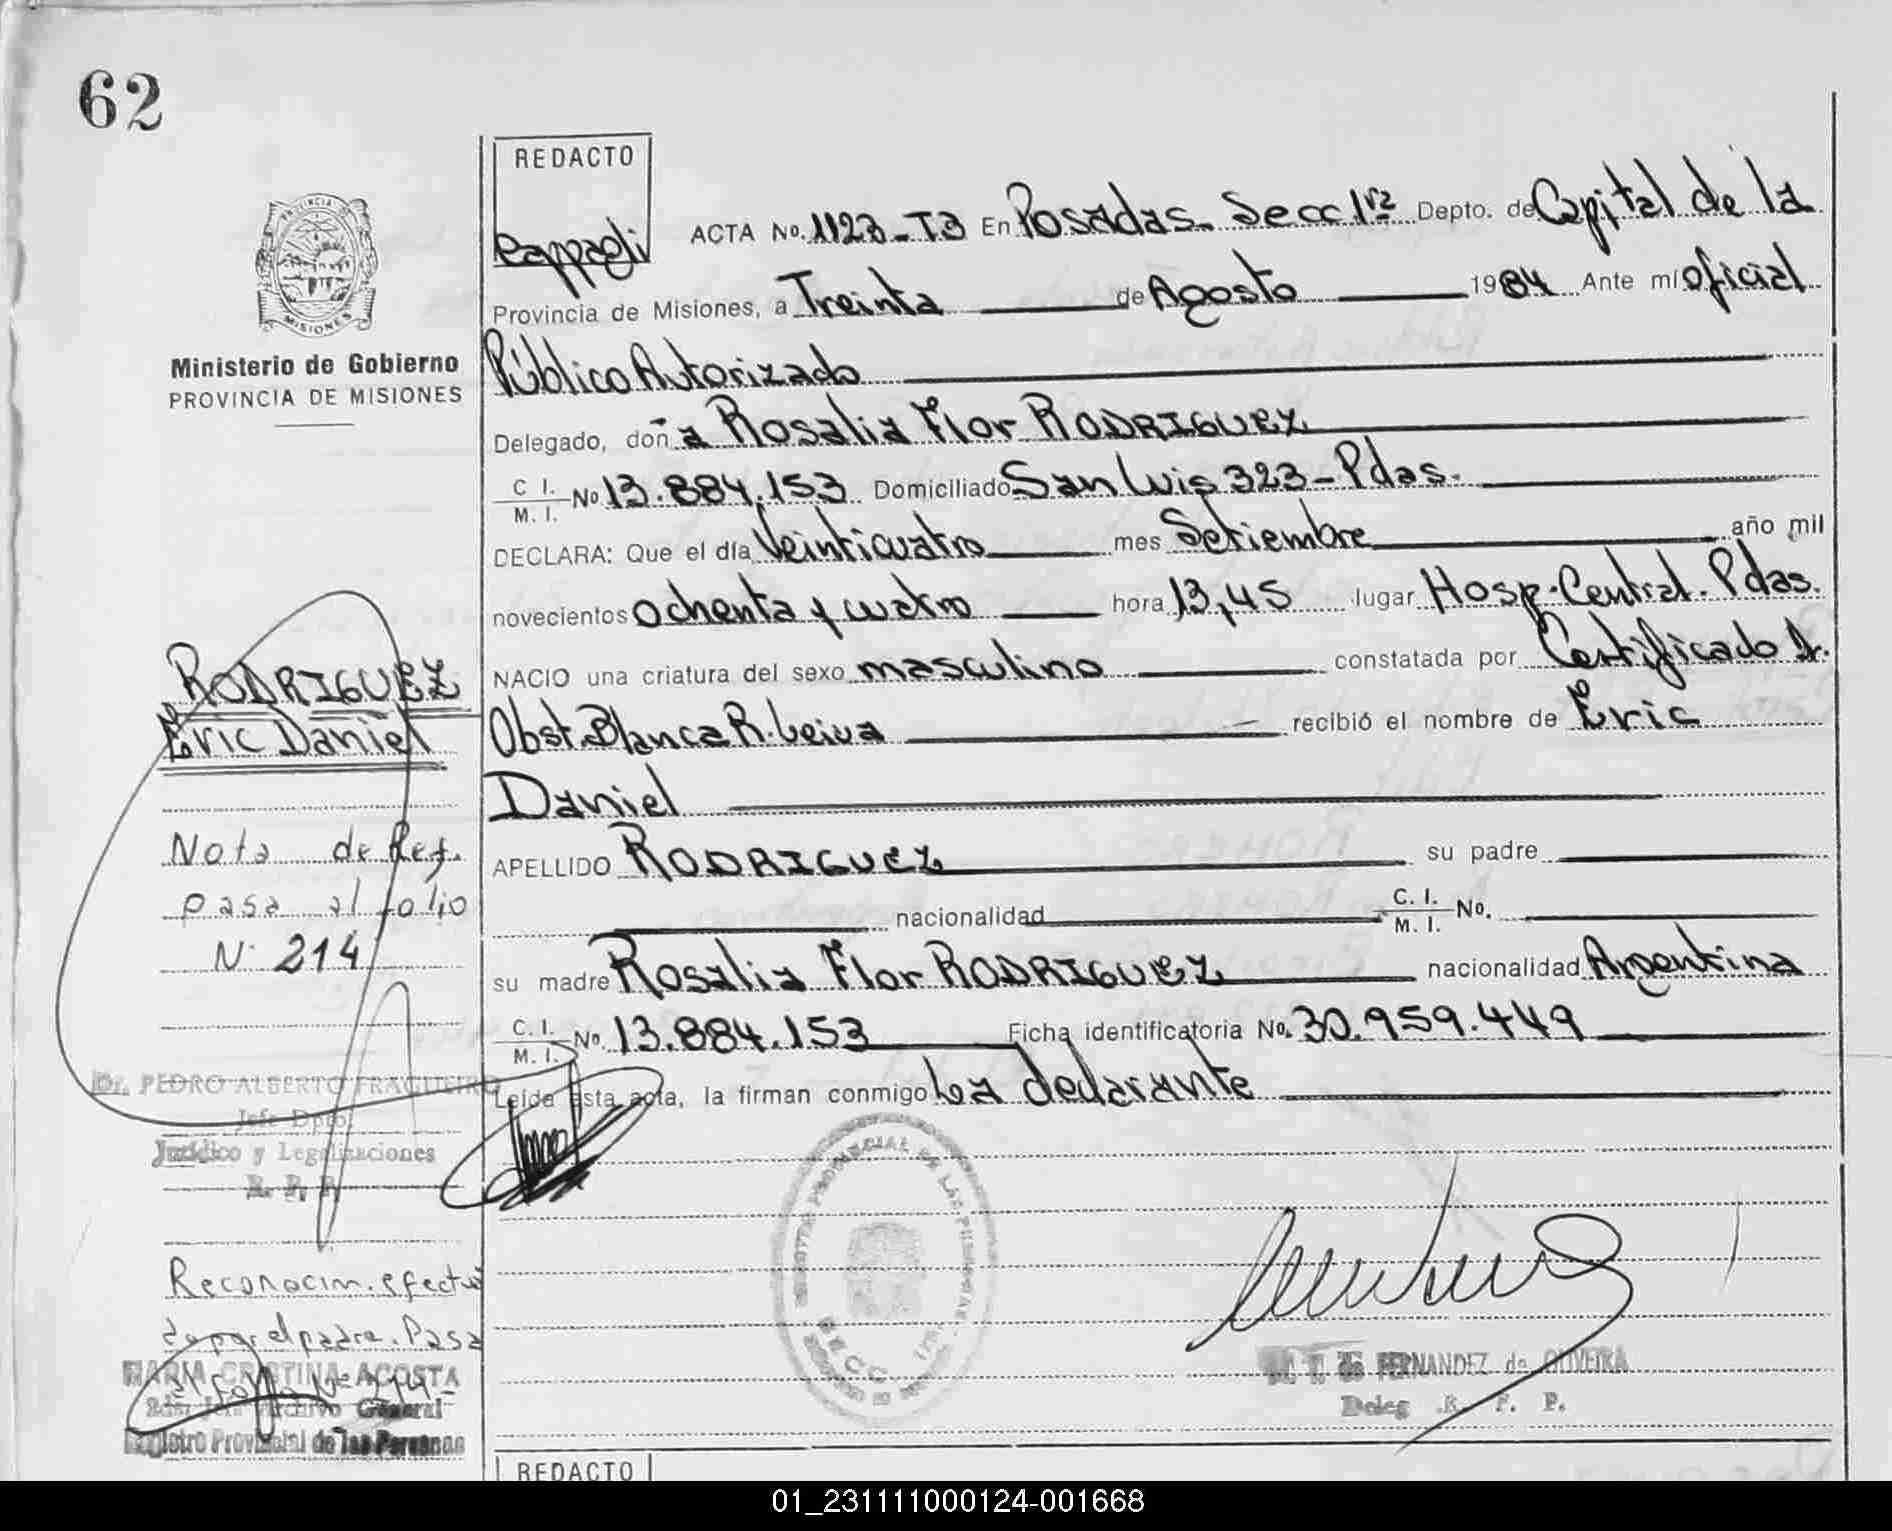 62
REDACTO
ACTA No. 1123-T3 En Posadas- Secc 1ra Depto. de Capital de la
Provincia de Misiones, a Treinta de Agosto 1984 Ante mí oficial
Ministerio de Gobierno
PROVINCIA DE MISIONES
PROVINCIA DE
MISIONES
Público Autorizado
Delegado, don a Rosalia Flor RODRIGUEZ
C. I.
M. I. No 13.884.153 Domiciliado San Luis 323- Pdas.
DECLARA: Que el día Veinticuatro mes Setiembre año mil
novecientos ochenta y cuatro hora 13,45 lugar Hosp. Central. Pdas.
NACIO una criatura del sexo masculino constatada por Certificado
Obst. Blanca R. Leiva recibió el nombre de Eric
Daniel
APELLIDO RODRIGUEZ su padre
nacionalidad C. I.
M. I. No.
su madre Rosalia Flor RODRIGUEZ nacionalidad Argentina
C. I.
M. I. No. 13.884.153 Ficha identificatoria No. 30.959.449
Leída esta acta, la firman conmigo La declarante
RODRIGUEZ
Eric Daniel
Nota de Ref.
pasa al folio
N° 214
Dr. PEDRO ALBERTO FRAGUEIRO
Jefe Dpto.
Jurídico y Legalizaciones
R. P. P.
Reconocim. efectua
do por el padre. Pasa
MARIA CRISTINA ACOSTA
Archivo General
Registro Provincial de las Personas
FERNANDEZ de OLIVEIRA
Deleg. R. P. P.
REDACTO
01_231111000124-001668